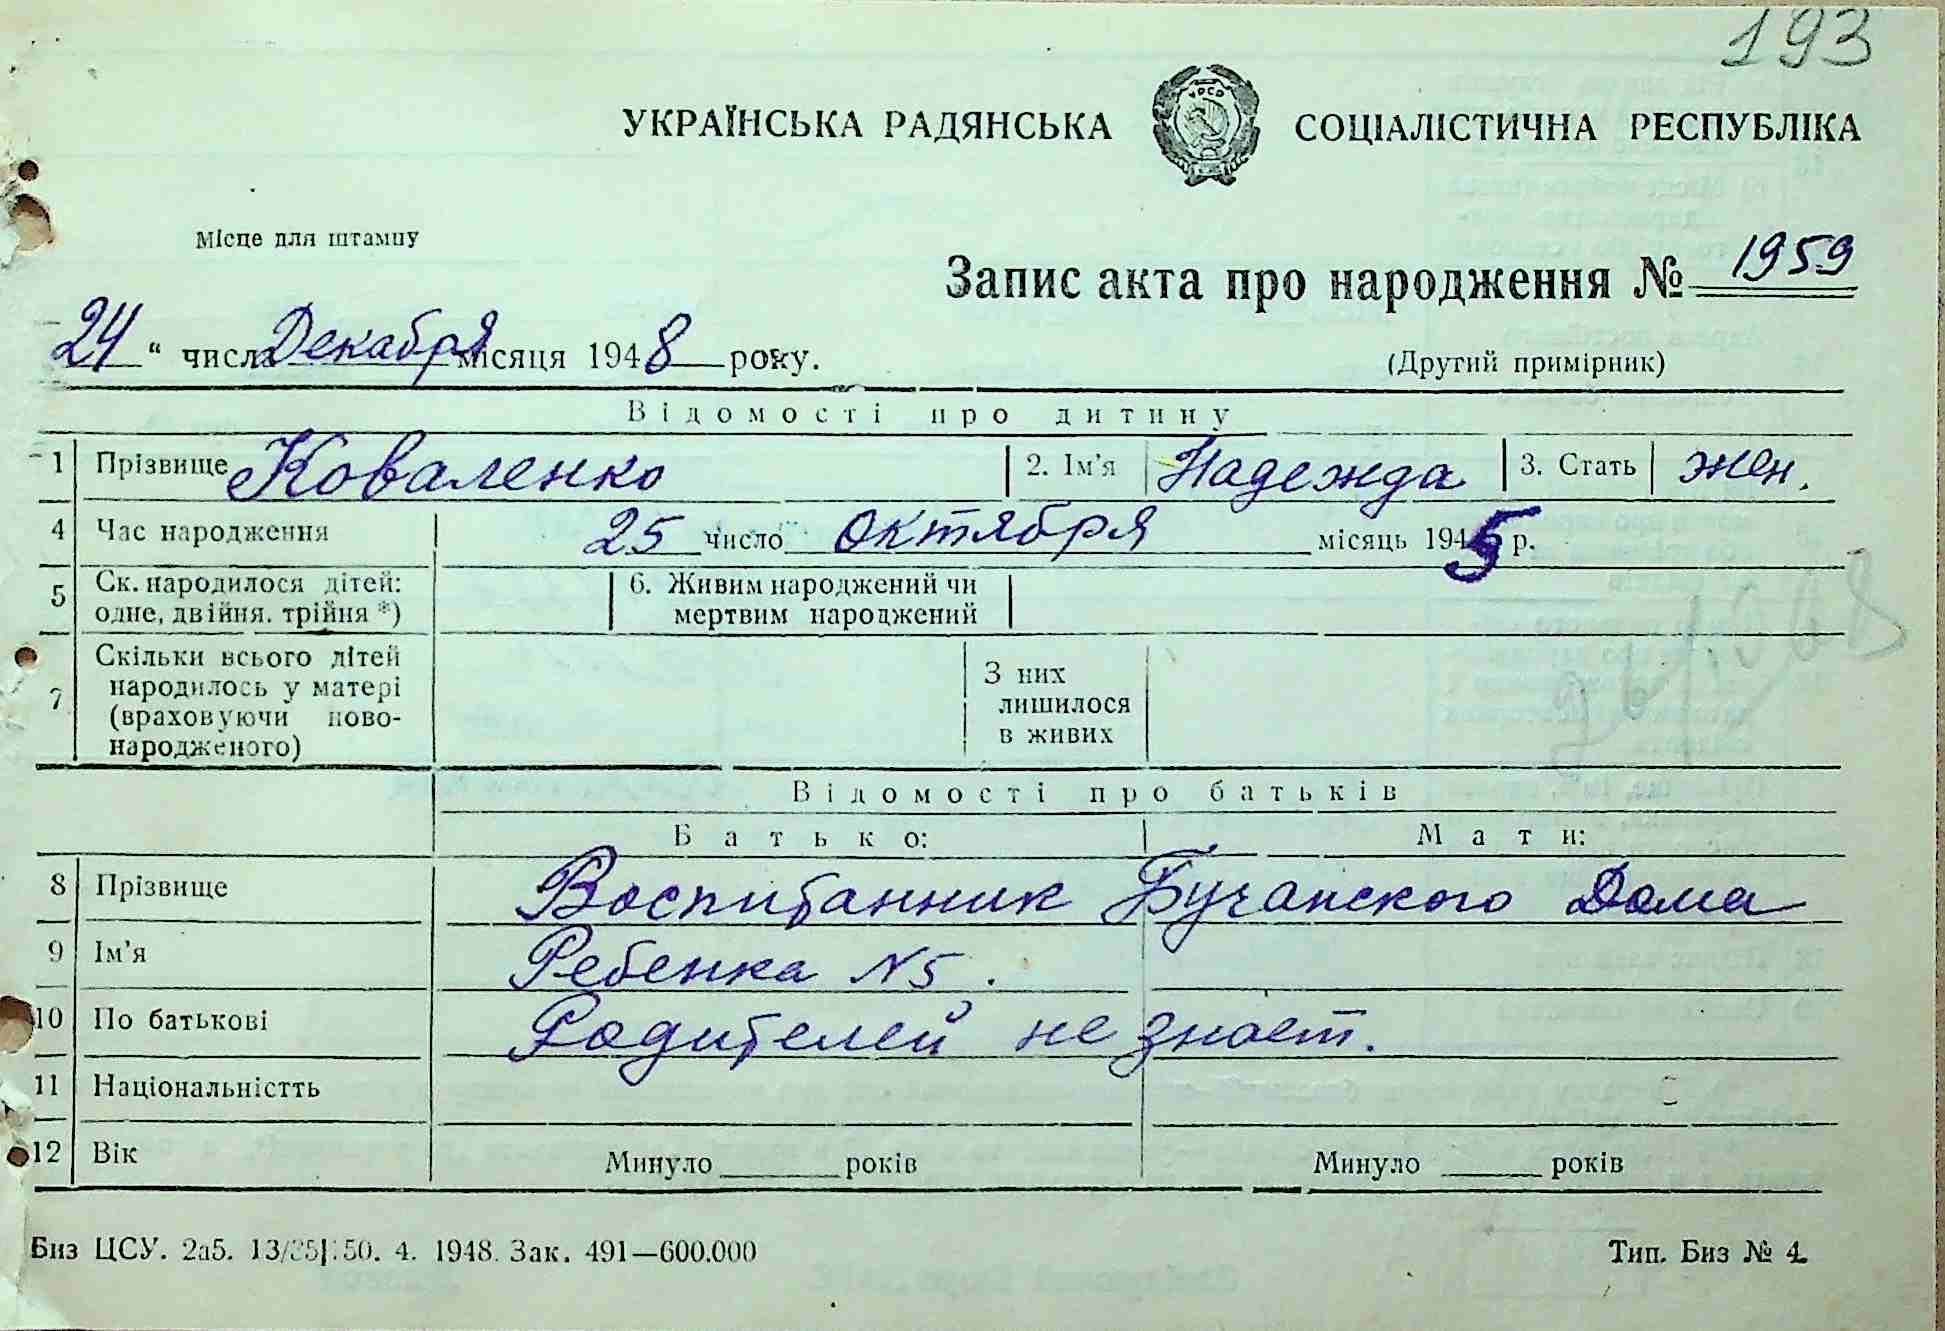 193
УКРАЇНСЬКА РАДЯНСЬКА СОЦІАЛІСТИЧНА РЕСПУБЛІКА
УРСР
Місце для штампу
Запис акта про народження № 1959
24 " числа Декабря місяця 1948 року.
(Другий примірник)
Відомості про дитину
1 Прізвище Коваленко 2. Ім'я Надежда 3. Стать жен.
4 Час народження 25 число октября місяць 1945 р.
5 Ск. народилося дітей: одне, двійня, трійня *) 6. Живим народжений чи мертвим народжений
7 Скільки всього дітей народилось у матері (враховуючи ново-народженого) З них лишилося в живих
Відомості про батьків
Батько: Мати:
8 Прізвище Воспитанник Бучанского Дома
9 Ім'я Ребенка N5.
10 По батькові Родителей не знает.
11 Національністть
12 Вік Минуло років Минуло років
Биз ЦСУ. 2а5. 13/35 50. 4. 1948. Зак. 491—600.000
Тип. Биз № 4.